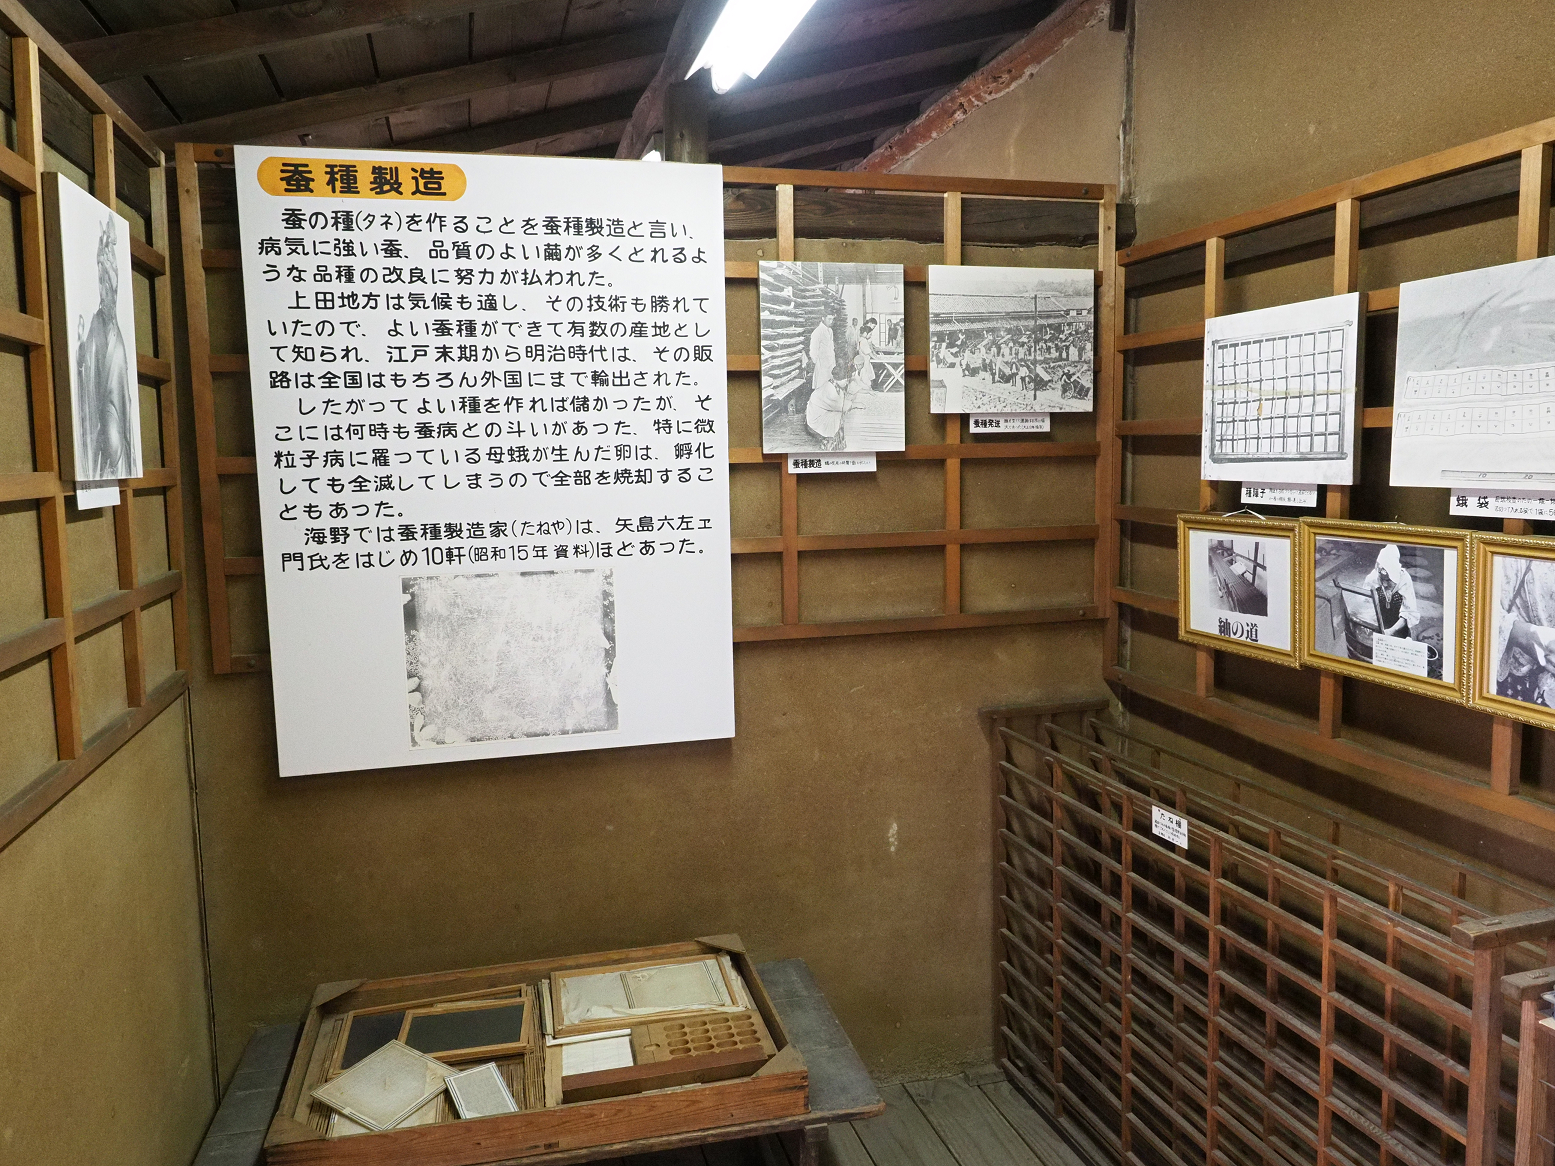 蚕種製造
蚕の種(タネ)を作ることを蚕種製造と言い、
病気に強い蚕、品質のよい繭が多くとれるよ
うな品種の改良に努力が払われた。
上田地方は気候も適し、その技術も勝れて
いたので、よい蚕種ができて有数の産地とし
て知られ、江戸末期から明治時代は、その販
路は全国はもちろん外国にまで輸出された。
したがってよい種を作れば儲かったが、そ
こには何時も蚕病との斗いがあった、特に微
粒子病に罹っている母蛾が生んだ卵は、孵化
しても全滅してしまうので全部を焼却するこ
ともあった。
海野では蚕種製造家(たねや)は、矢島六左ヱ
門氏をはじめ10軒(昭和15年資料)ほどあった。
蚕種製造
蚕種発送
種繭子
蛾袋
紬の道
たね棚